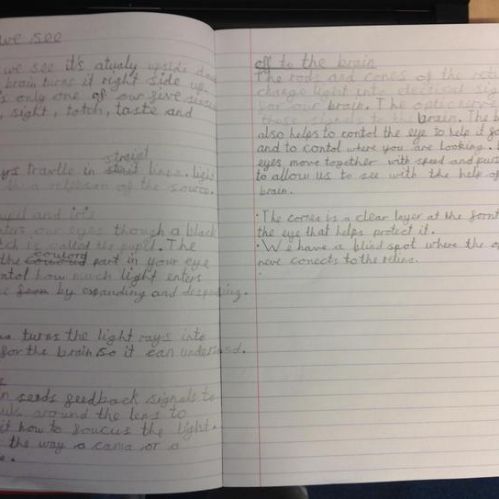 we see
we see it's atualy upside dow
brain turns it right side up.
s only one of our five senses
, sight, totch, taste and
straigt
ys travlle in lines. light
is a of the source.
upil and iris
nters our eyes though a black
tch is called the pupil. The
the coulord part in your eye
ntol how much light enters
by expanding and
turns the light rays into
for the brain so it can understand.
n sends feedback signals to
around the lens to
it how to foucus the light.
the way a or a
off to the brain
The rods and cones of the ret
change light into electrical sig
for our brain. The optic nerve
these signals to the brain. The b
also helps to contol the eye to help it fo
and to contol where you are looking.
eyes move together with speed and
to allow us to see with the help of
brain.
· The cornea is a clear layer at the front
the eye that helps protect it.
· We have a blind spot where the op
nerve conects to the retina.